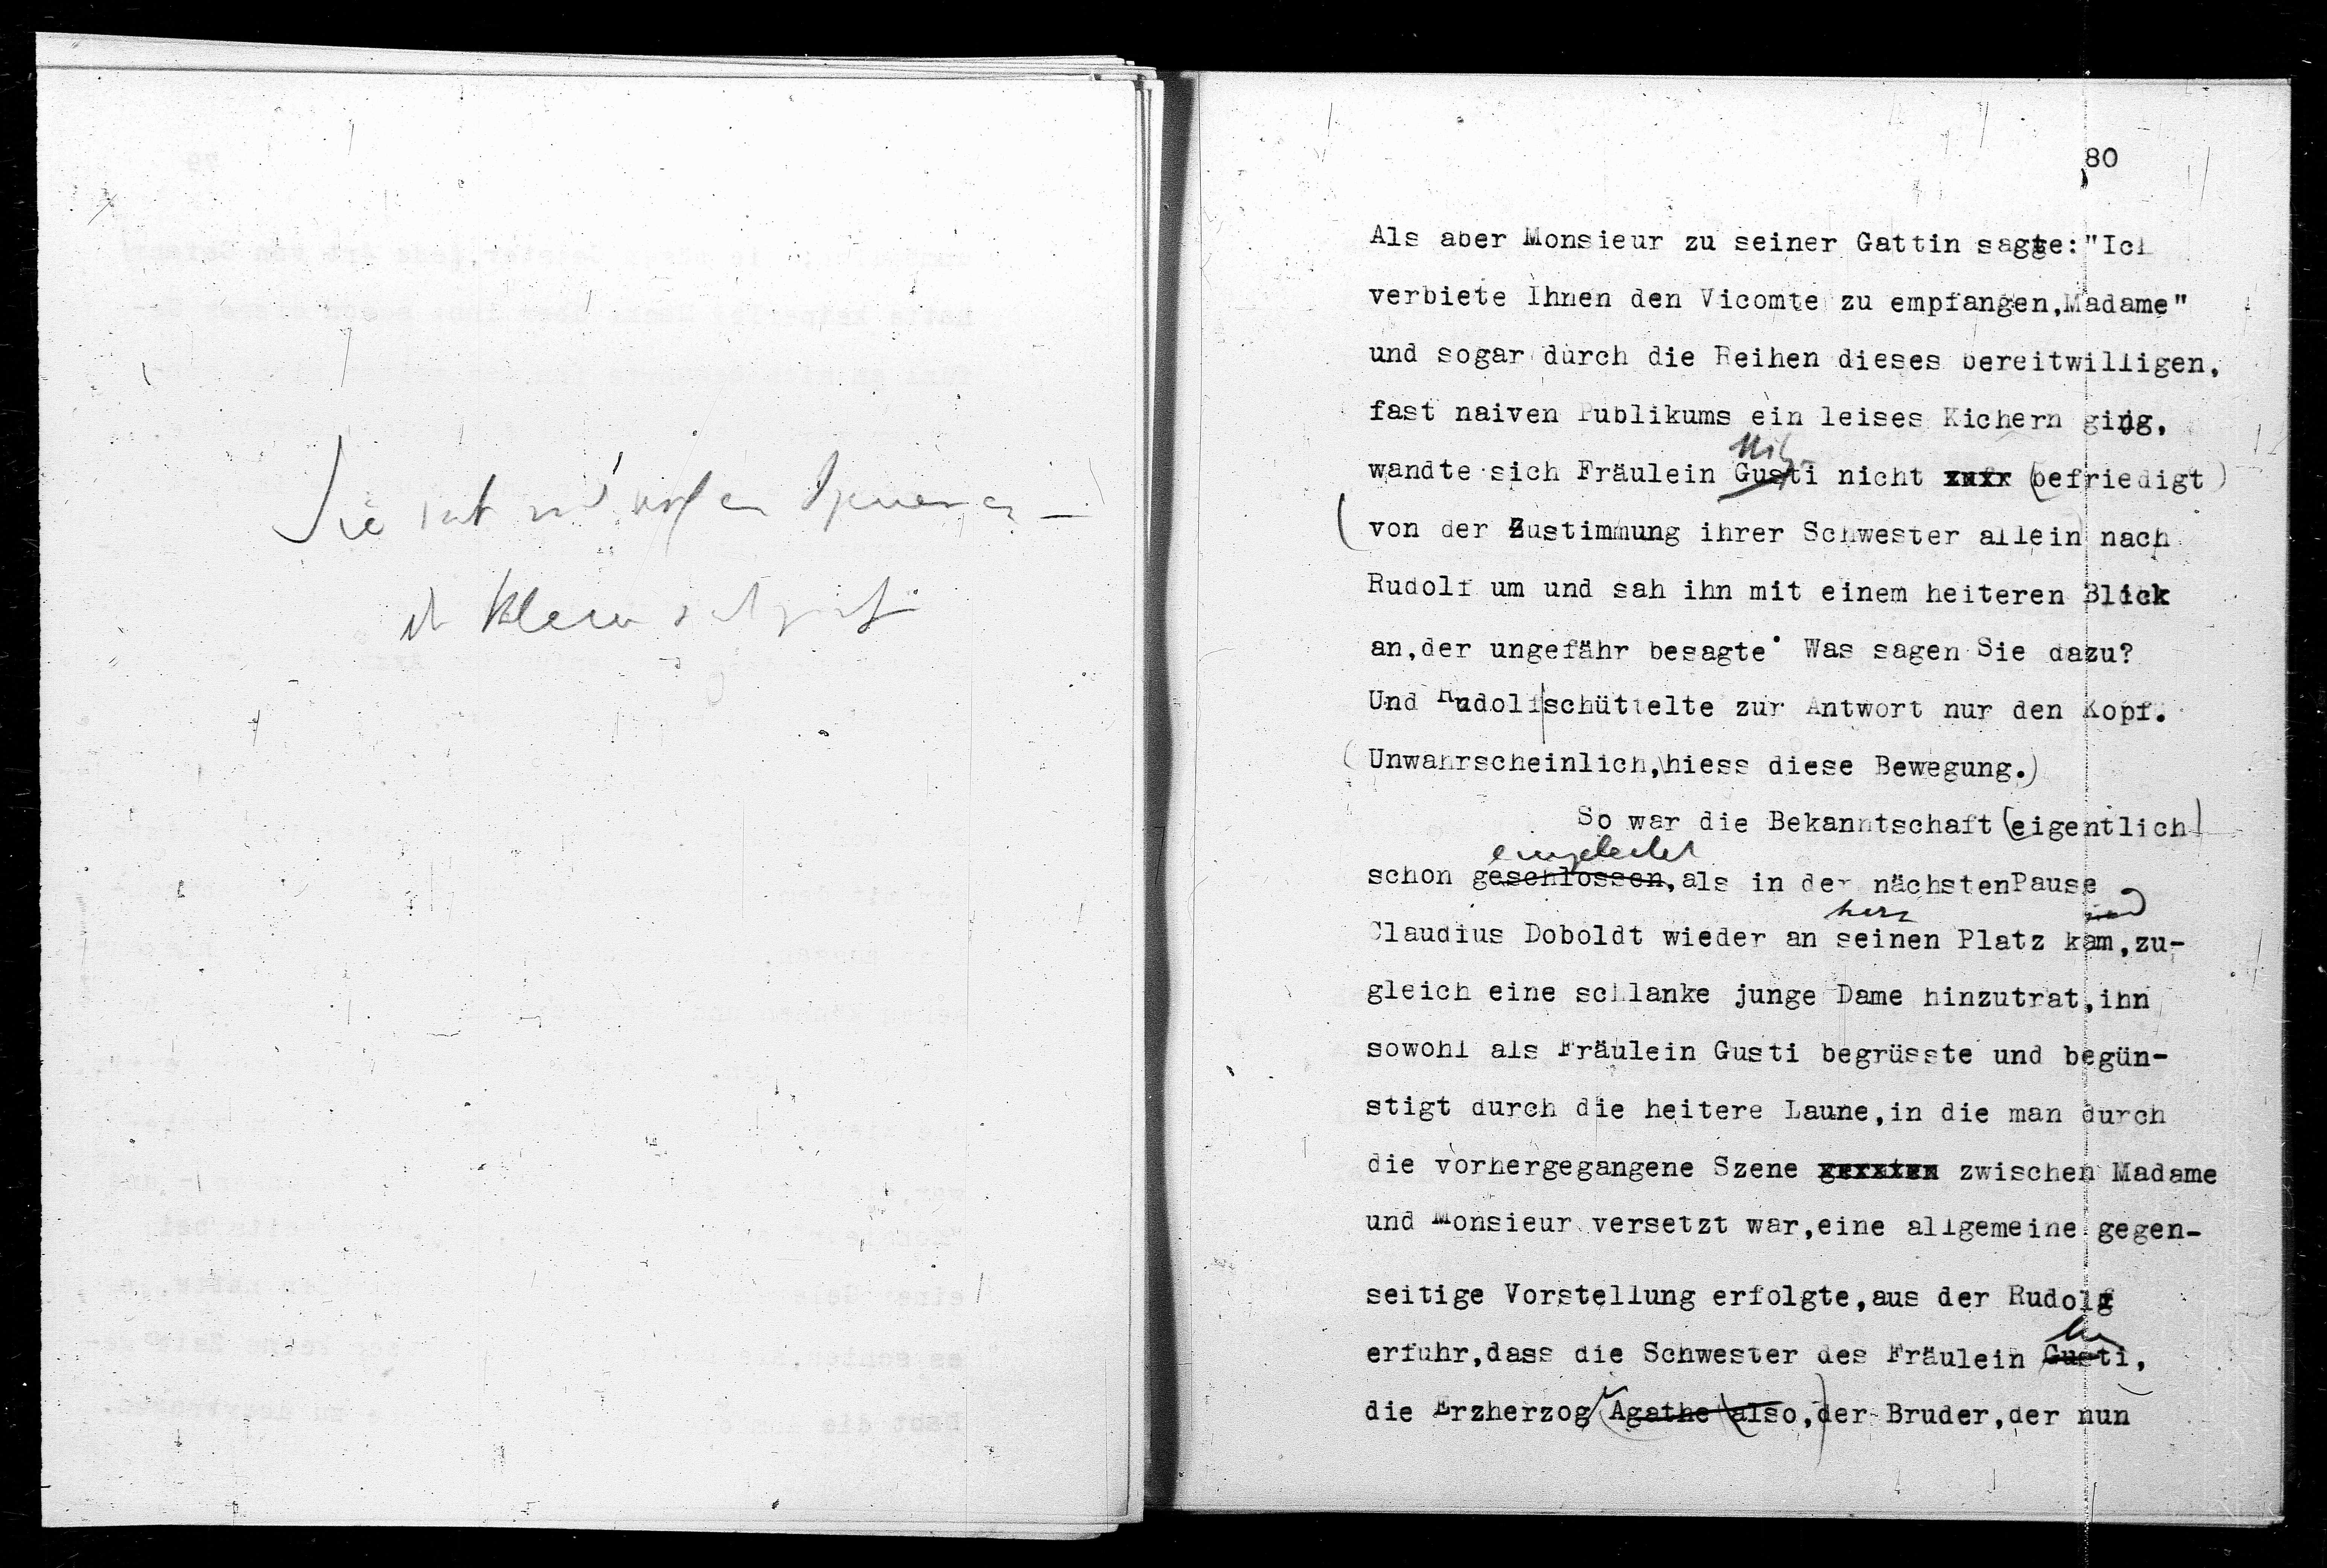 Sie
80
Als aber Monsieur zu seiner Gattin sagte:"Ich
verbiete Ihnen den Vicomte zu empfangen,Madame"
und sogar durch die Reihen dieses bereitwilligen,
fast naiven Publikums ein leises Kichern ging,
wandte sich Fräulein Gusti nicht (befriedigt)
(von der Zustimmung ihrer Schwester allein) nach
Rudolf um und sah ihn mit einem heiteren Blick
an,der ungefähr besagte: Was sagen Sie dazu?
Und Rudolf schüttelte zur Antwort nur den Kopf.
(Unwahrscheinlich,hiess diese Bewegung.)
So war die Bekanntschaft (eigentlich)
eingeleitet
schon geschlossen,als in der nächstenPause
Claudius Doboldt wieder an seinen Platz kam,zu-
gleich eine schlanke junge Dame hinzutrat,ihn
sowohl als Fräulein Gusti begrüsste und begün-
stigt durch die heitere Laune,in die man durch
die vorhergegangene Szene zwischen Madame
und Monsieur versetzt war,eine allgemeine gegen-
seitige Vorstellung erfolgte,aus der Rudolf
erfuhr,dass die Schwester des Fräulein Gusti,
die Erzherzog (Agathe (also,)der Bruder,der nun